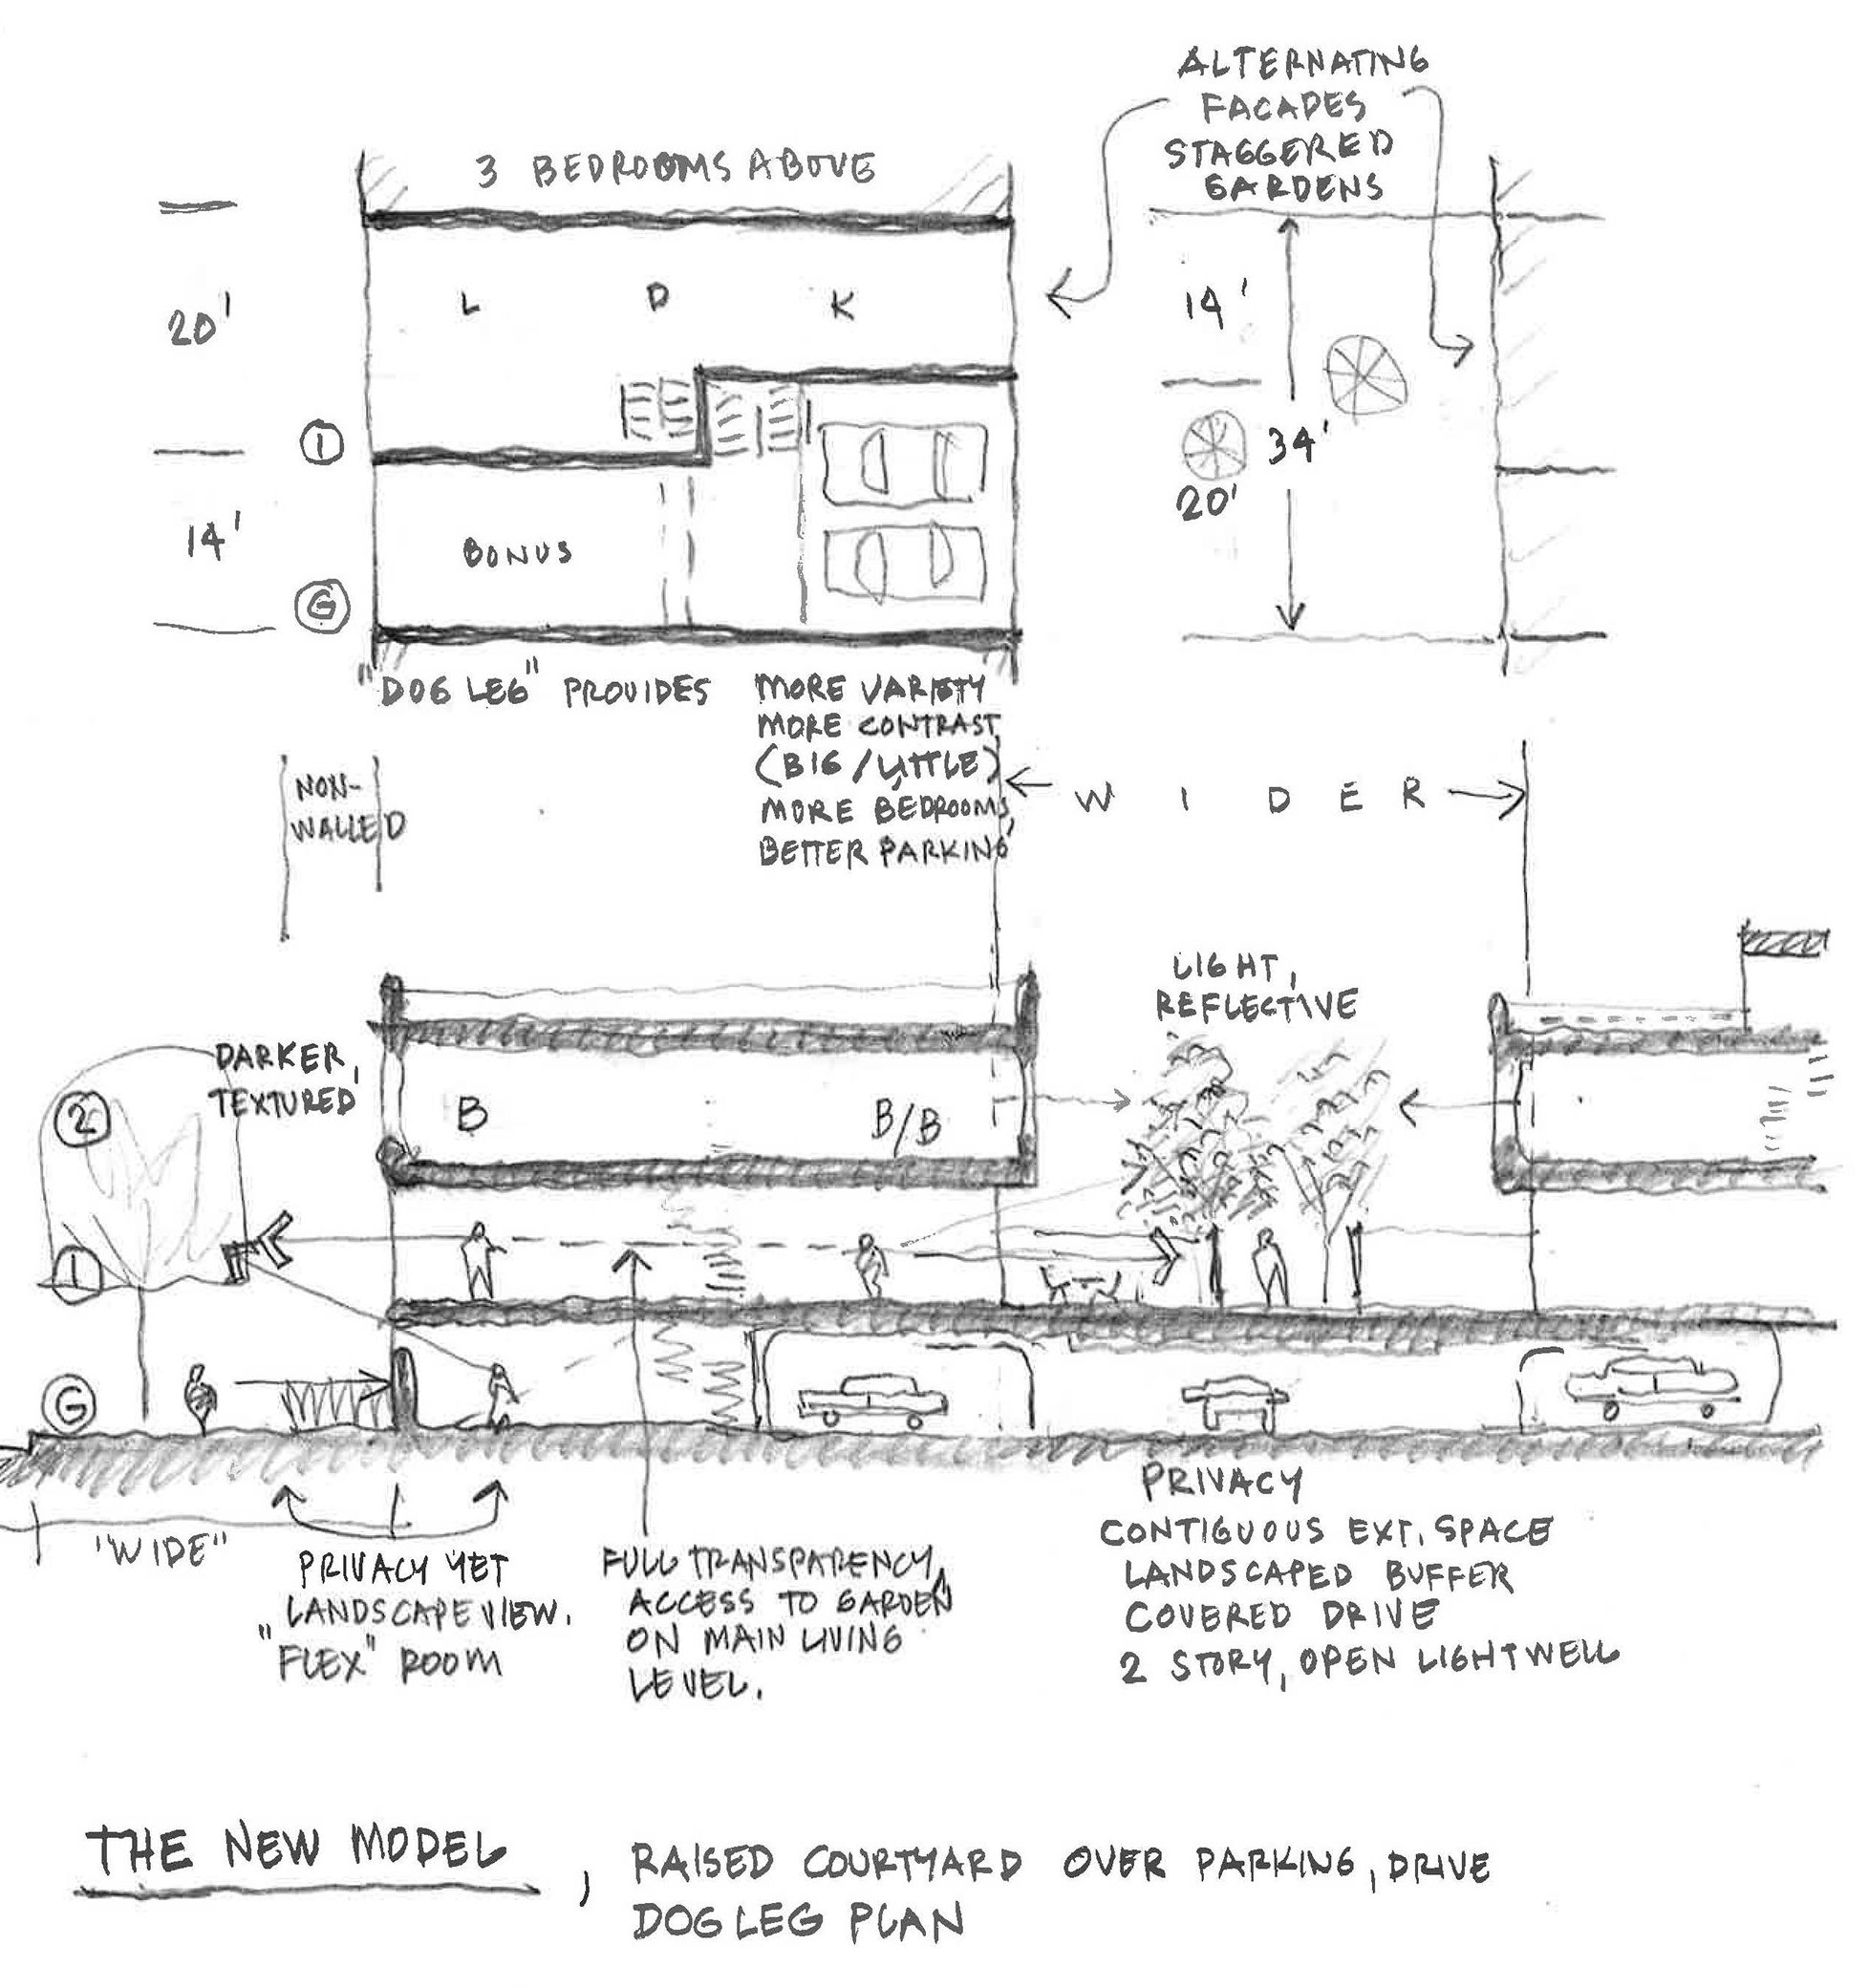 ALTERNATING
FACADES
STAGGERED
GARDENS
3 BEDROOMS ABOVE
20'
L D K
14'
1
34'
20'
14'
BONUS
G
"DOG LEG" PROVIDES
MORE VARIETY
MORE CONTRAST
(BIG/LITTLE)
MORE BEDROOMS,
BETTER PARKING
NON-
WALLED
WIDER
LIGHT,
REFLECTIVE
DARKER,
TEXTURED
2
B
B/B
1
G
"WIDE"
PRIVACY YET
LANDSCAPE VIEW.
"FLEX" ROOM
FULL TRANSPARENCY,
ACCESS TO GARDEN
ON MAIN LIVING
LEVEL.
PRIVACY
CONTIGUOUS EXT. SPACE
LANDSCAPED BUFFER
COVERED DRIVE
2 STORY, OPEN LIGHTWELL
THE NEW MODEL, RAISED COURTYARD OVER PARKING, DRIVE
DOG LEG PLAN